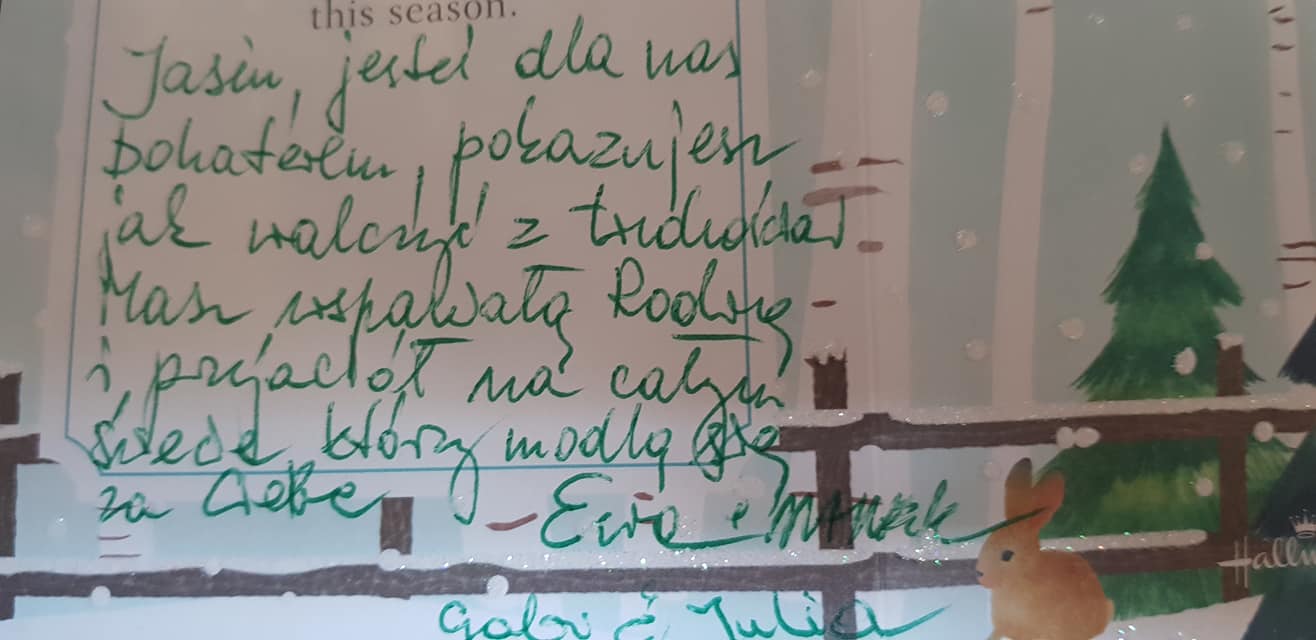 this season.
Jasiu, jesteś dla nas
bohaterem, pokazujesz
jak walczyć z trudnościami
Masz wspaniałą Rodzinę
i przyjaciół na całym
świecie którzy modlą się
za Ciebie
Ewa i
Gabi i Julia
Hallm